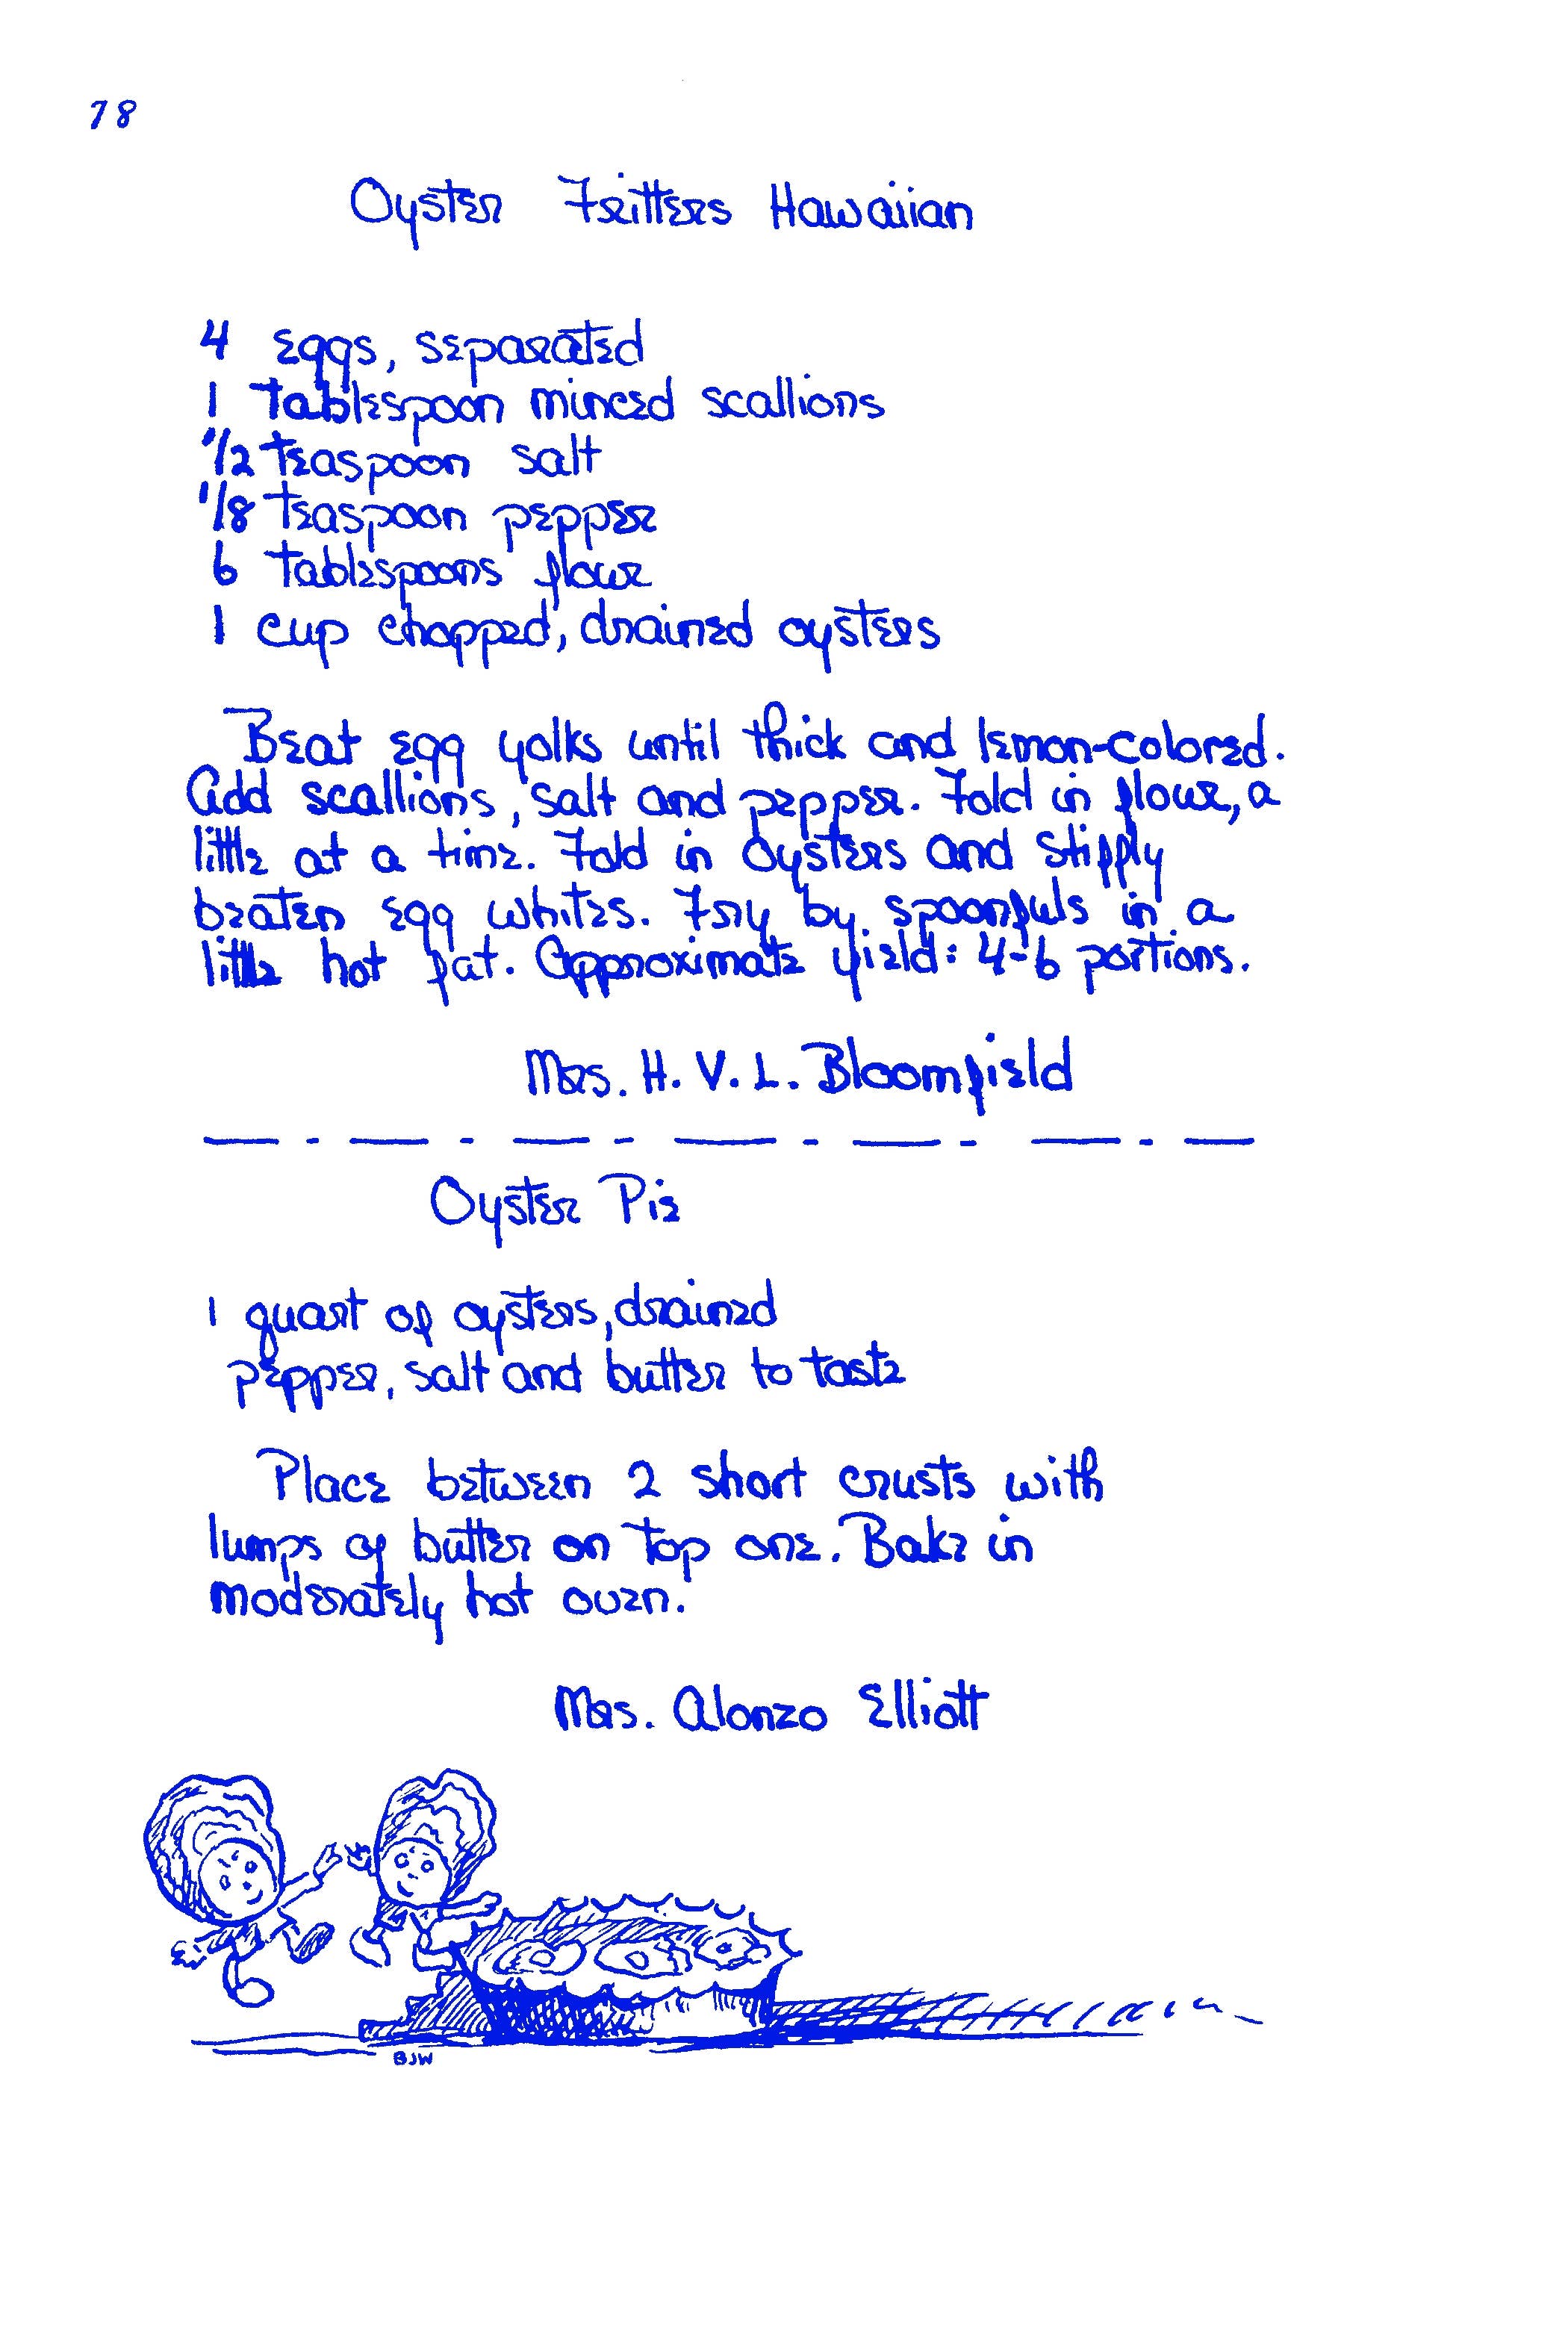 78
Oyster Fritters Hawaiian
4 eggs, separated
1 tablespoon minced scallions
1/2 teaspoon salt
1/8 teaspoon pepper
6 tablespoons flour
1 cup chopped, drained oysters
Beat egg yolks until thick and lemon-colored.
Add scallions, salt and pepper. Fold in flour, a
little at a time. Fold in oysters and stiffly
beaten egg whites. Fry by spoonfuls in a
little hot fat. Approximate yield: 4-6 portions.
Mrs. H. V. L. Bloomfield
Oyster Pie
1 quart of oysters, drained
pepper, salt and butter to taste
Place between 2 short crusts with
lumps of butter on top one. Bake in
moderately hot oven.
Mrs. Alonzo Elliott
BJW